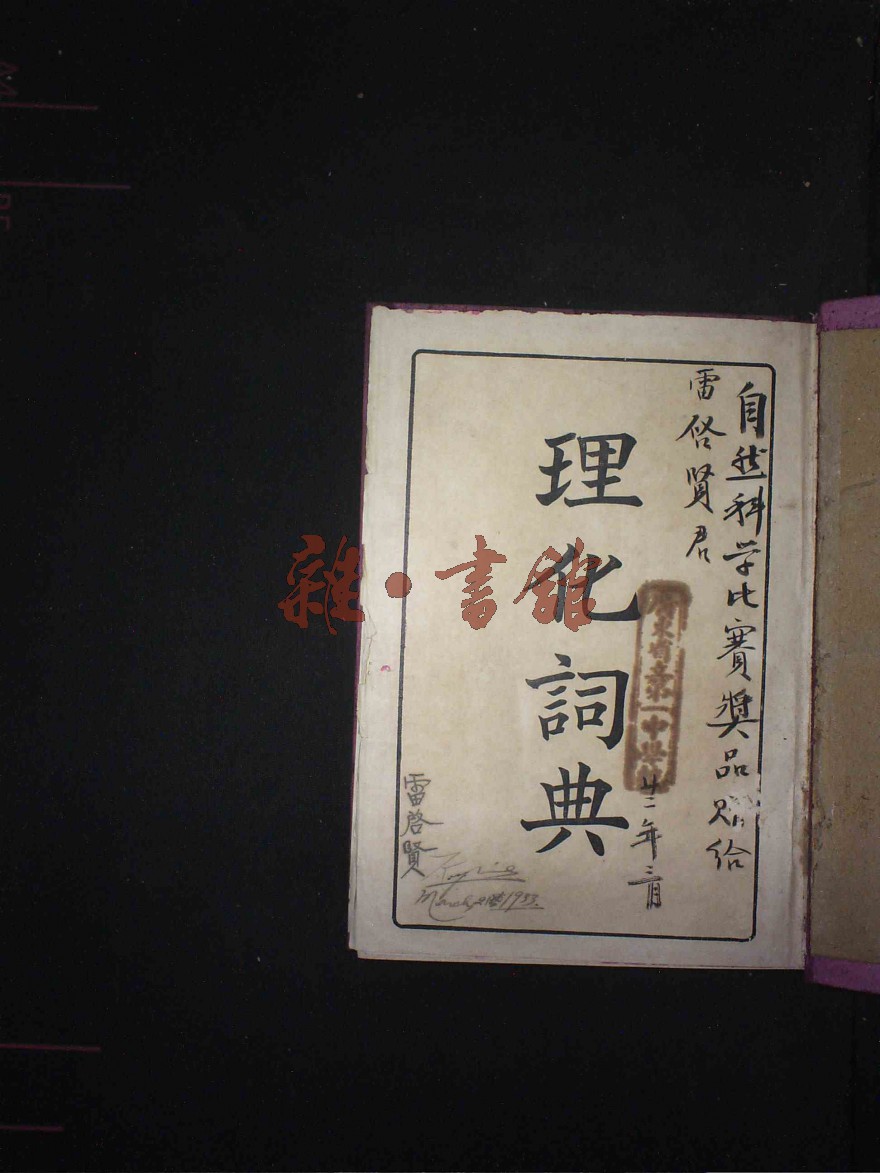 自然科学比賽獎品贈给
雷啓賢君
廣東省立第一中學
廿二年三月
理化詞典
雷啓賢
March 21st 1933.
雜·書館